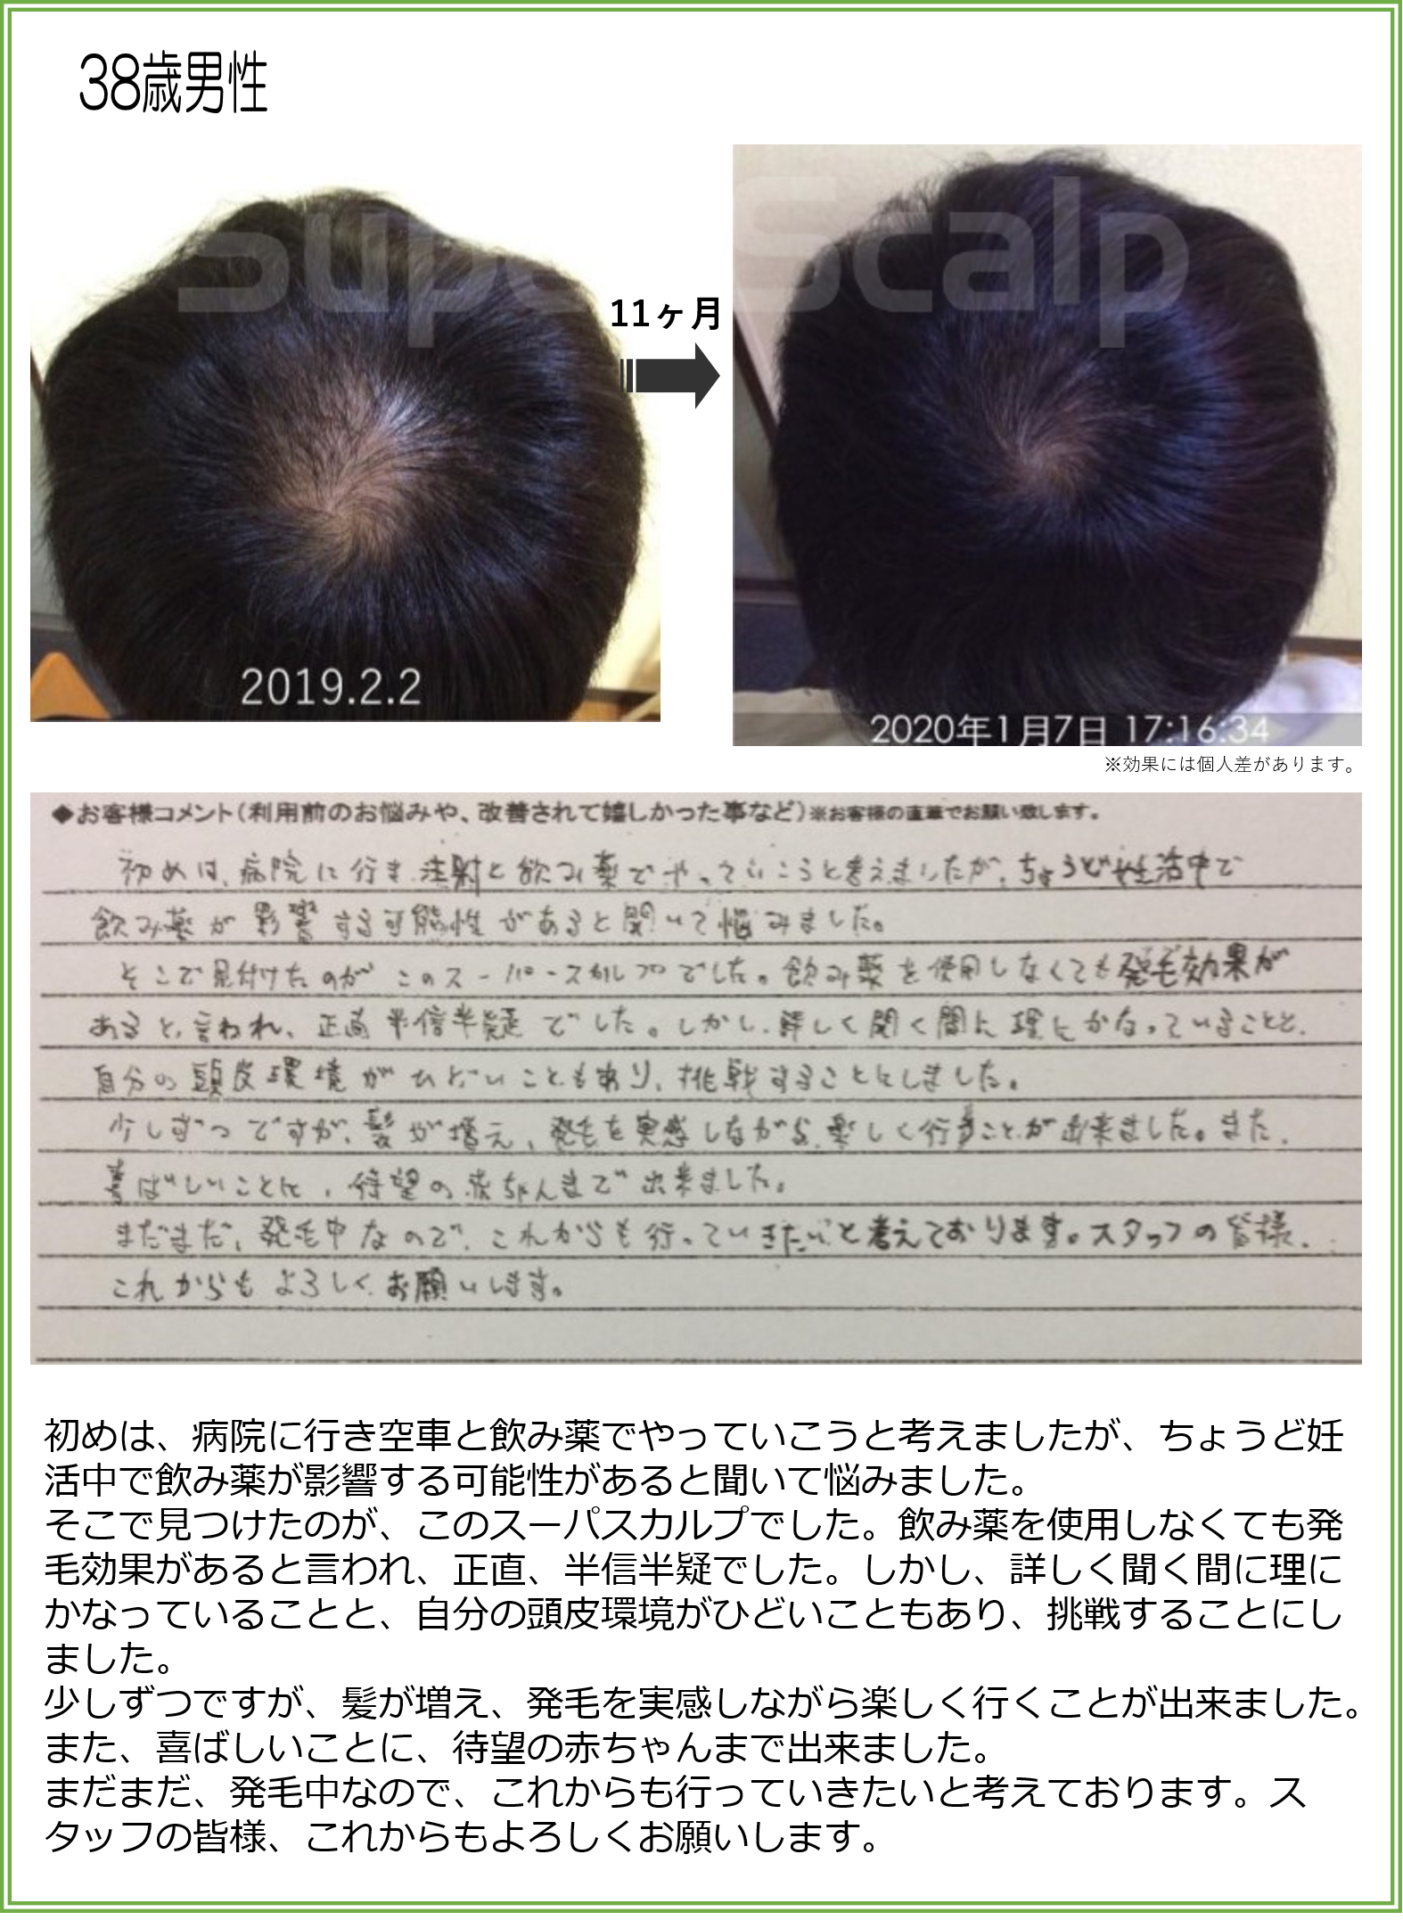 38歳男性
Super Scalp
11ヶ月
2019.2.2
2020年1月7日 17:16:34
※効果には個人差があります。
◆お客様コメント(利用前のお悩みや、改善されて嬉しかった事など)※お客様の直筆でお願い致します。
初めは、病院に行き注射と飲み薬でやっていこうと考えましたが、ちょうど妊活中で
飲み薬が影響する可能性があると聞いて悩みました。
そこで見付けたのがこのスーパースカルプでした。飲み薬を使用しなくても発毛効果が
あると言われ、正直半信半疑でした。しかし、詳しく聞く間に理にかなっていることと、
自分の頭皮環境がひどいこともあり、挑戦することにしました。
少しずつですが、髪が増え、発毛を実感しながら楽しく行うことが出来ました。また、
喜ばしいことに、待望の赤ちゃんまで出来ました。
まだまだ、発毛中なので、これからも行っていきたいと考えております。スタッフの皆様、
これからもよろしくお願いします。
初めは、病院に行き空車と飲み薬でやっていこうと考えましたが、ちょうど妊
活中で飲み薬が影響する可能性があると聞いて悩みました。
そこで見つけたのが、このスーパスカルプでした。飲み薬を使用しなくても発
毛効果があると言われ、正直、半信半疑でした。しかし、詳しく聞く間に理に
かなっていることと、自分の頭皮環境がひどいこともあり、挑戦することにし
ました。
少しずつですが、髪が増え、発毛を実感しながら楽しく行くことが出来ました。
また、喜ばしいことに、待望の赤ちゃんまで出来ました。
まだまだ、発毛中なので、これからも行っていきたいと考えております。ス
タッフの皆様、これからもよろしくお願いします。